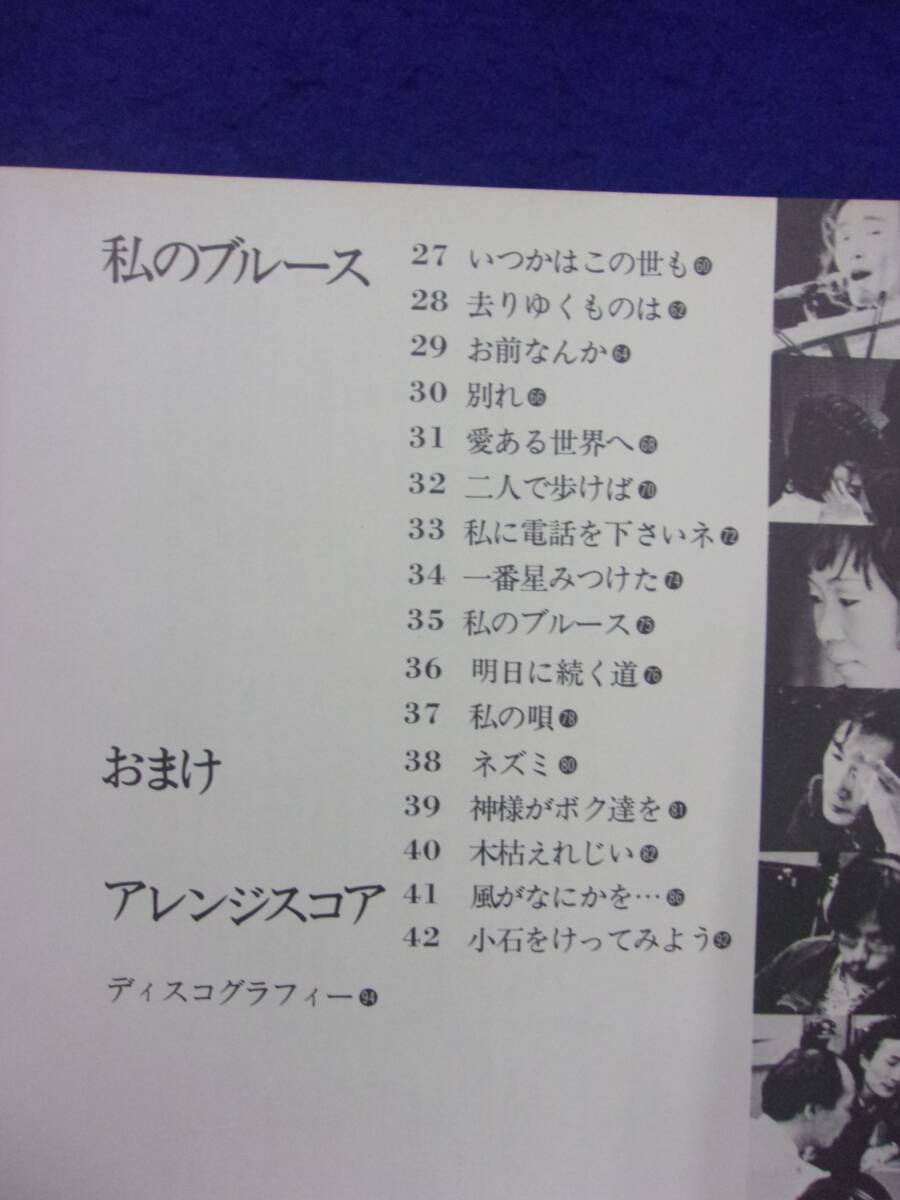 私のブルース
27 いつかはこの世も 60
28 去りゆくものは 62
29 お前なんか 64
30 別れ 66
31 愛ある世界へ 68
32 二人で歩けば 70
33 私に電話を下さいネ 72
34 一番星みつけた 74
35 私のブルース 75
36 明日に続く道 76
37 私の唄 78
おまけ
38 ネズミ 80
39 神様がボク達を 81
40 木枯えれじい 82
アレンジスコア
41 風がなにかを… 86
42 小石をけってみよう 92
ディスコグラフィー 94